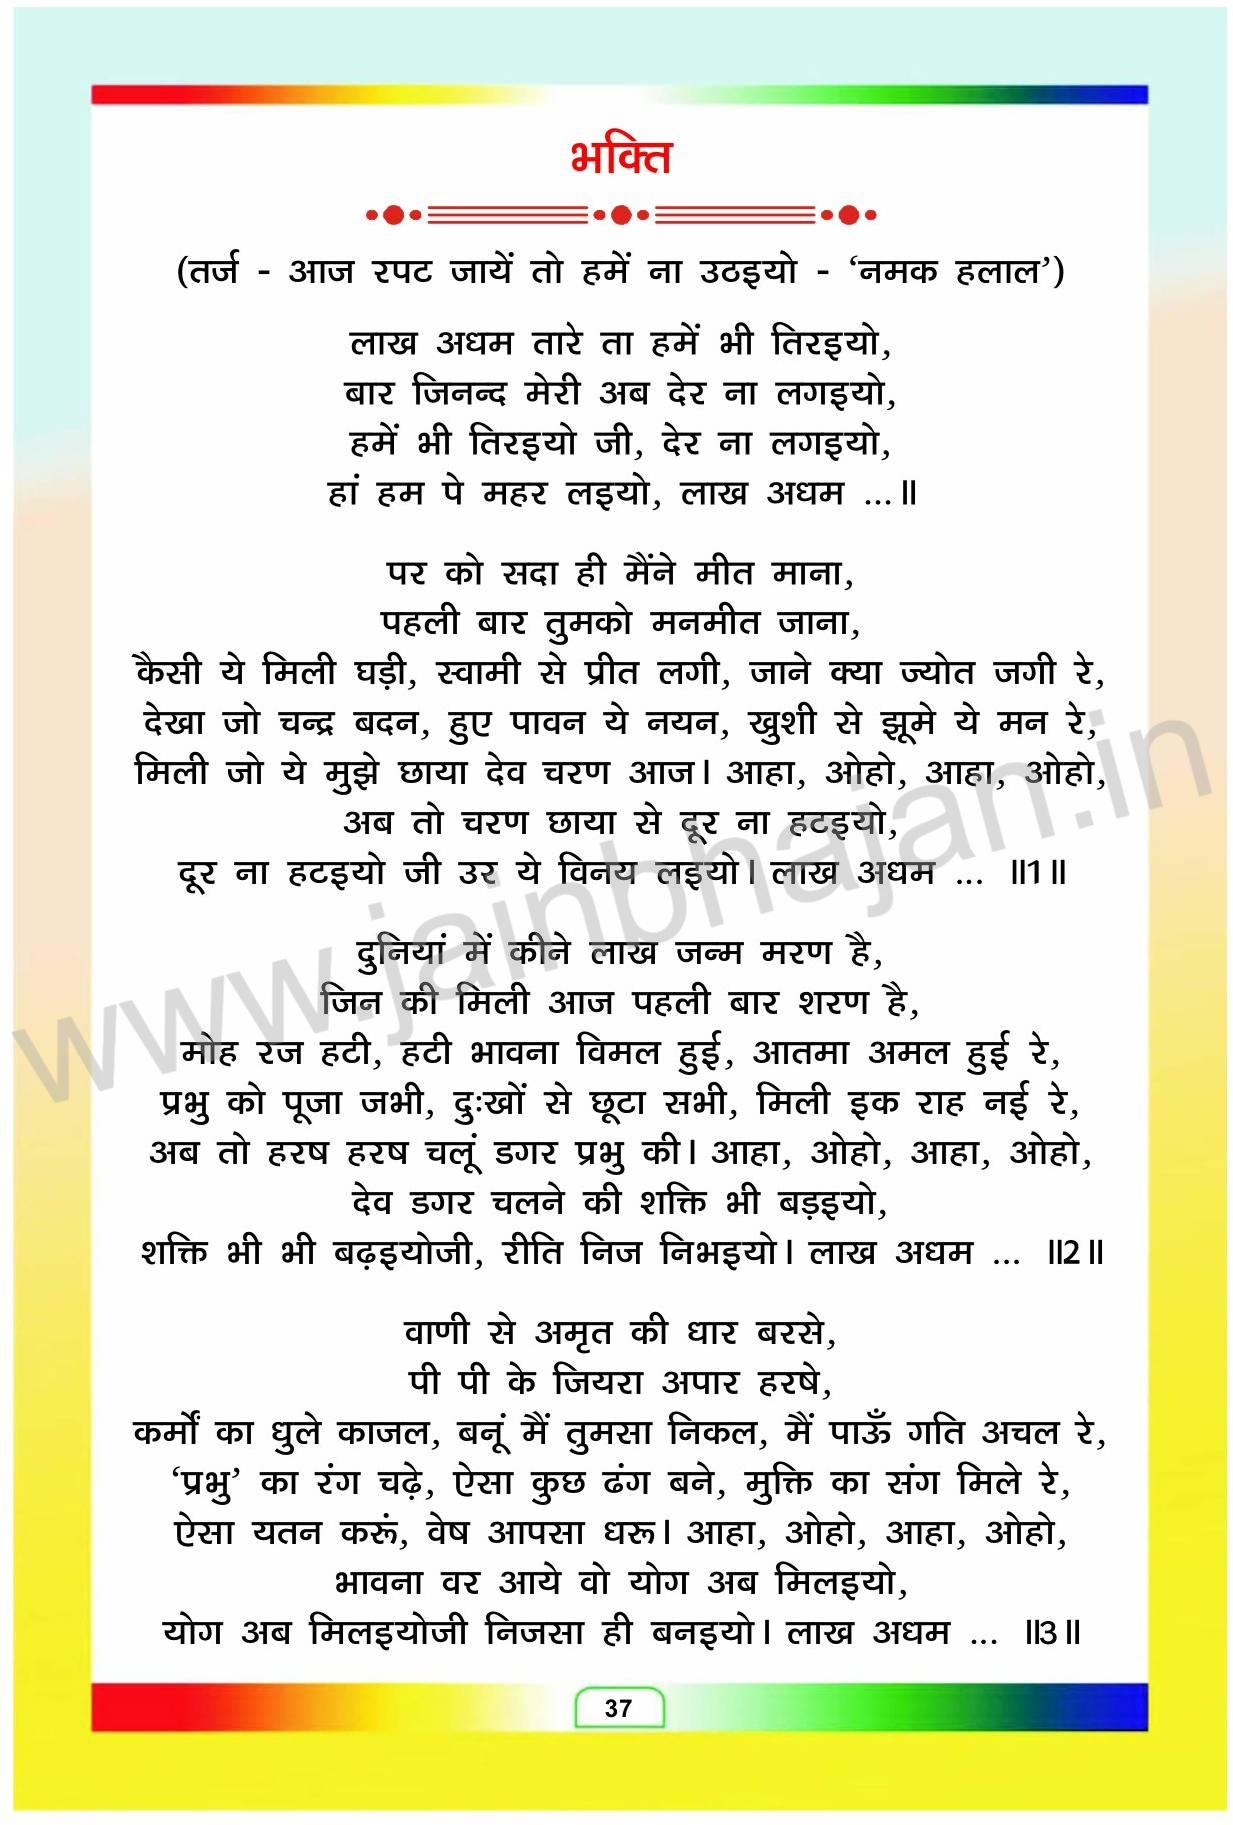 भक्ति
(तर्ज - आज रपट जायें तो हमें ना उठइयो - ‘नमक हलाल’)
लाख अधम तारे ता हमें भी तिरइयो,
बार जिनन्द मेरी अब देर ना लगइयो,
हमें भी तिरइयो जी, देर ना लगइयो,
हां हम पे महर लइयो, लाख अधम ...॥
पर को सदा ही मैंने मीत माना,
पहली बार तुमको मनमीत जाना,
कैसी ये मिली घड़ी, स्वामी से प्रीत लगी, जाने क्या ज्योत जगी रे,
देखा जो चन्द्र बदन, हुए पावन ये नयन, खुशी से झूमे ये मन रे,
मिली जो ये मुझे छाया देव चरण आज। आहा, ओहो, आहा, ओहो,
अब तो चरण छाया से दूर ना हटइयो,
दूर ना हटइयो जी उर ये विनय लइयो। लाख अधम ... ॥1॥
दुनियां में कीने लाख जन्म मरण है,
जिन की मिली आज पहली बार शरण है,
मोह रज हटी, हटी भावना विमल हुई, आतमा अमल हुई रे,
प्रभु को पूजा जभी, दुःखों से छूटा सभी, मिली इक राह नई रे,
अब तो हरष हरष चलूं डगर प्रभु की। आहा, ओहो, आहा, ओहो,
देव डगर चलने की शक्ति भी बड़इयो,
शक्ति भी भी बढ़इयोजी, रीति निज निभइयो। लाख अधम ... ॥2॥
वाणी से अमृत की धार बरसे,
पी पी के जियरा अपार हरषे,
कर्मों का धुले काजल, बनूं मैं तुमसा निकल, मैं पाऊँ गति अचल रे,
‘प्रभु’ का रंग चढ़े, ऐसा कुछ ढंग बने, मुक्ति का संग मिले रे,
ऐसा यतन करूं, वेष आपसा धरू। आहा, ओहो, आहा, ओहो,
भावना वर आये वो योग अब मिलइयो,
योग अब मिलइयोजी निजसा ही बनइयो। लाख अधम ... ॥3॥
37
www.jainbhajan.in